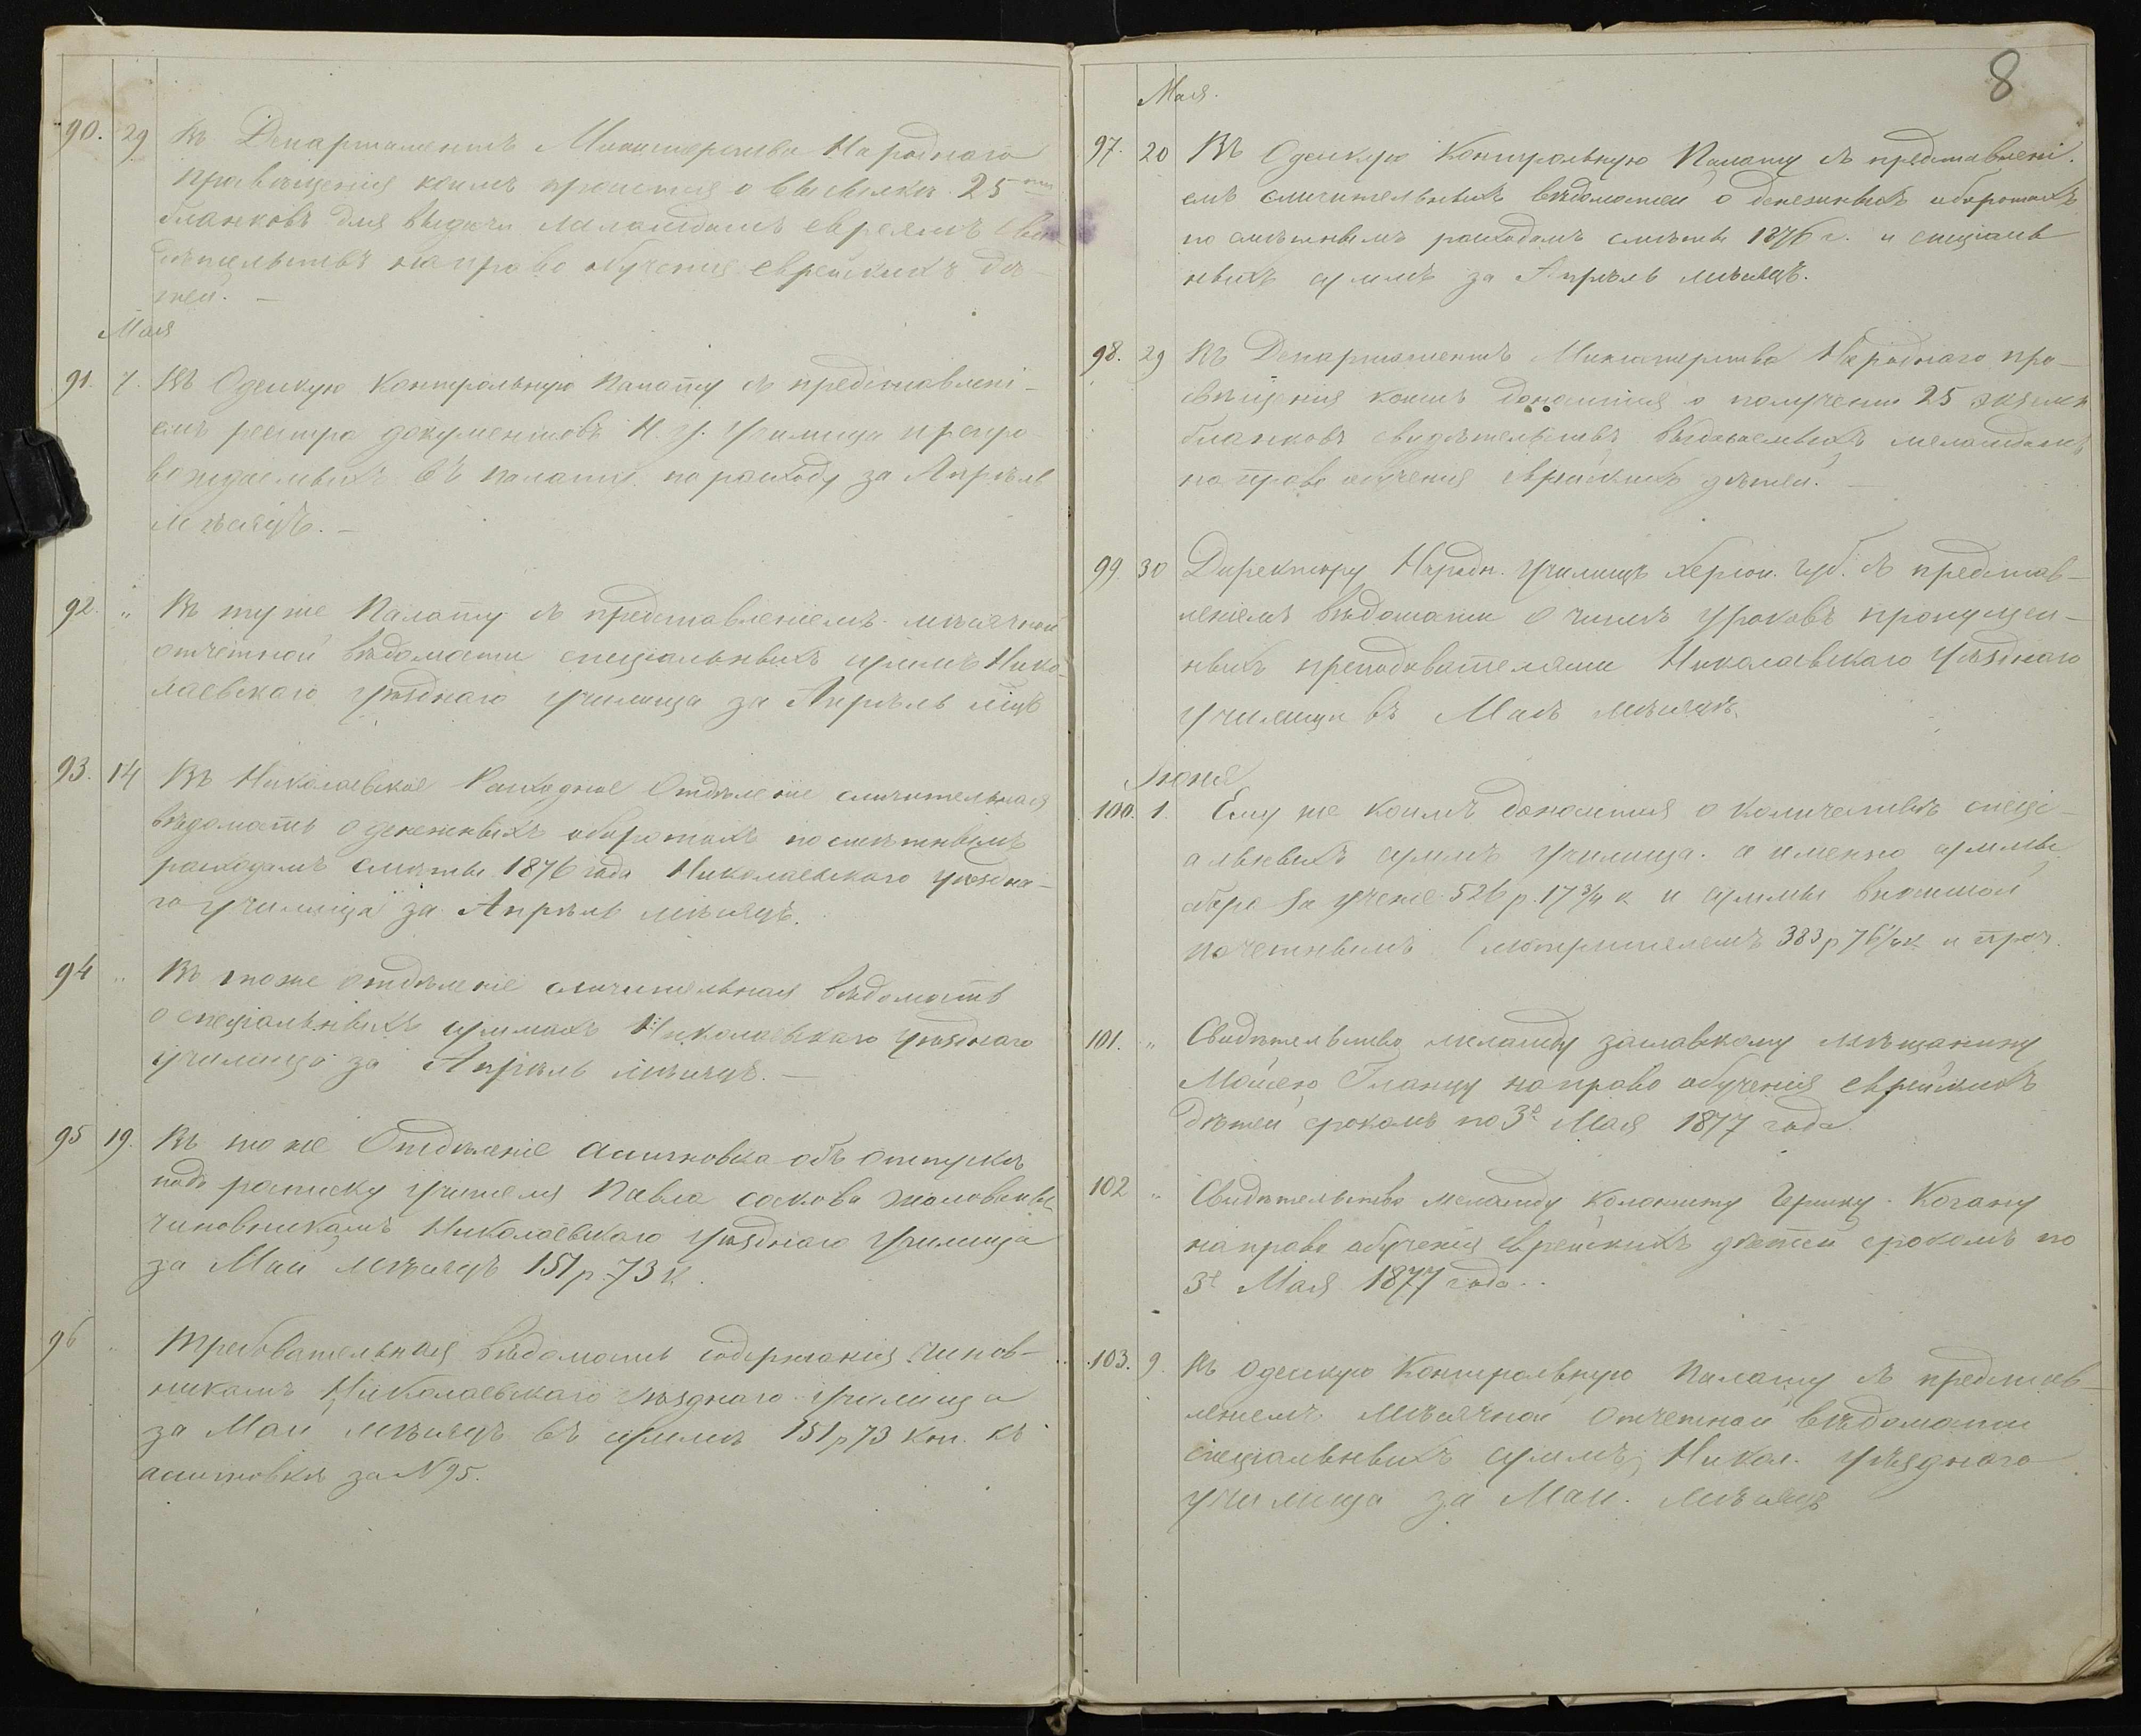 90. 29 Въ Департаментъ Министерства Народнаго
просвѣщенія коимъ просится о высылкѣ 25ти
бланковъ для выдачи меламдамъ евреямъ сви
дѣтельствъ на право обученія еврейскихъ дѣ-
тей. —
Мая
91. 7. Въ Одесскую Контрольную Палату съ представлені-
емъ реестра документовъ Н. У. Училища препро
вождаемыхъ въ палату по расходу за Апрѣль
мѣсяцъ. —
92. „ Въ туже Палату съ представленіемъ мѣсячной
отчетной вѣдомости спеціальныхъ суммъ Нико-
лаевскаго уѣзднаго училища за Апрѣль мцъ
93. 14 Въ Николаевское Расходное Отдѣленіе сличительная
вѣдомость о денежныхъ оборотахъ по смѣтнымъ
расходамъ смѣты 1876 года Николаевскаго уѣздна-
го училища за Апрѣль мѣсяцъ.
94 „ Въ тоже отдѣленіе сличительная вѣдомость
о спеціальныхъ суммахъ Николаевскаго уѣзднаго
училища за Апрѣль мѣсяцъ. —
95 19. Въ тоже Отдѣленіе ассигновка объ отпускѣ
подъ росписку учителя Павла Соскова жалованья
чиновникамъ Николаевскаго уѣзднаго Училища
за Май мѣсяцъ 151 р. 73 к.
96 „ Требовательная вѣдомость содержанія чинов-
никамъ Николаевскаго уѣзднаго училища
за Май мѣсяцъ въ суммѣ 151 р 73 коп. къ
ассигновкѣ за N 95.
8
Мая.
97. 20 Въ Одесскую Контрольную Палату съ представлені-
емъ сличительныхъ вѣдомостей о денежныхъ оборотахъ
по смѣтнымъ расходамъ смѣты 1876 г. и спеціаль
ныхъ суммъ за Апрѣль мѣсяцъ.
98. 29 Въ Департаментъ Министерства Народнаго про-
свѣщенія коимъ доносится о полученіи 25 экземп
бланковъ свидѣтельствъ выдаваемыхъ меламдамъ
на право обученія еврейскихъ дѣтей. —
99. 30 Директору Народн. Училищъ Херсон. губ. съ представ-
леніемъ вѣдомости о числѣ уроковъ пропущен-
ныхъ преподавателями Николаевскаго Уѣзднаго
училища въ Маѣ мѣсяцѣ.
Іюня
100. 1. Ему же коимъ доносится о количествѣ спеці-
альныхъ суммъ училища. а именно суммы
сбора за ученіе 526 р. 17 3/4 к и суммы вносимой
почетнымъ Смотрителемъ 383 р 76 1/2 к и проч.
101. „ Свидѣтельство меламду заславскому мѣщанину
Мойсею Гланцу на право обученія еврейскихъ
дѣтей срокомъ по 3е Мая 1877 года.
102 „ Свидѣтельство меламду колонисту Когану
на право обученія еврейскихъ дѣтей срокомъ по
3е Мая 1877 года.
103. 9. Въ Одесскую Контрольную Палату съ представ-
леніемъ мѣсячной отчетной вѣдомости
спеціальныхъ суммъ Никол. уѣзднаго
училища за Май. мѣсяцъ